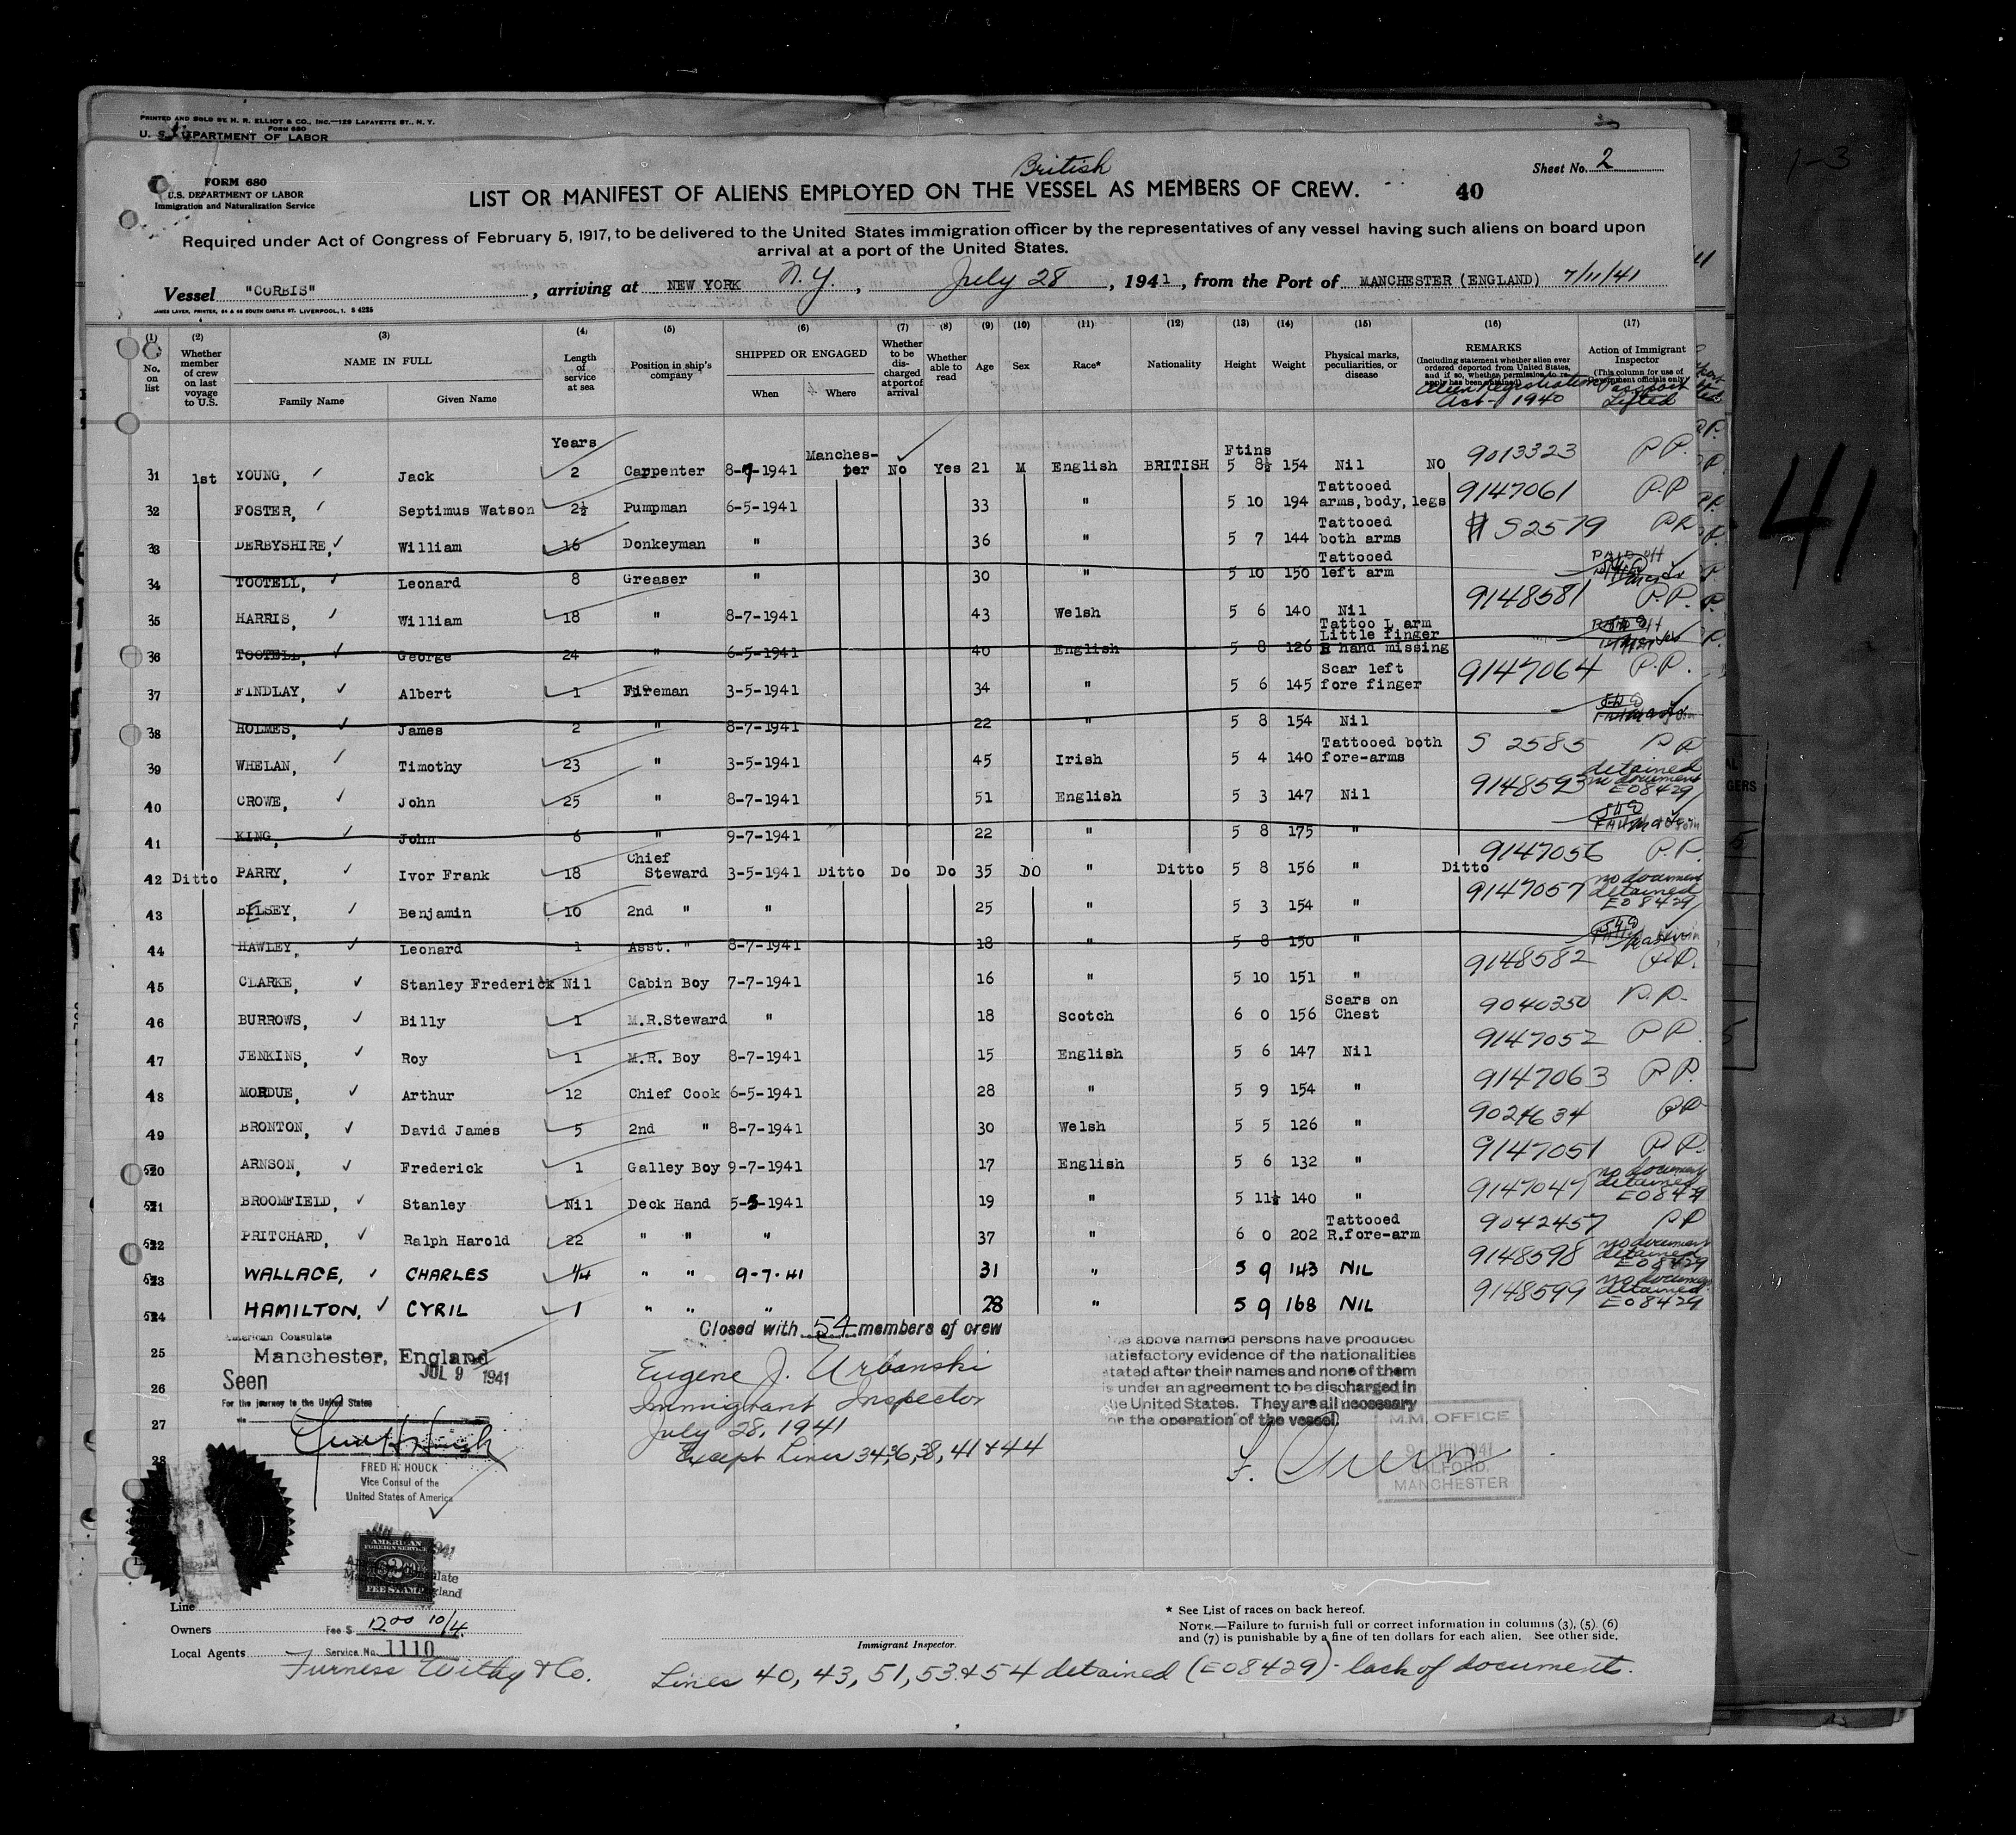 PRINTED AND SOLD BY H. R. ELLIOT & CO., INC.—129 LAFAYETTE ST., N. Y.
FORM 680
U. S. DEPARTMENT OF LABOR
British
Sheet No. 2
FORM 680
U.S. DEPARTMENT OF LABOR
Immigration and Naturalization Service
LIST OR MANIFEST OF ALIENS EMPLOYED ON THE VESSEL AS MEMBERS OF CREW.
40
Required under Act of Congress of February 5, 1917, to be delivered to the United States immigration officer by the representatives of any vessel having such aliens on board upon
arrival at a port of the United States.
Vessel "CORBIS", arriving at NEW YORK N.Y., July 28, 1941, from the Port of MANCHESTER (ENGLAND) 7/11/41
JAMES LAVER, PRINTER, 64 & 66 SOUTH CASTLE ST. LIVERPOOL, 1. S 4225
(1) No. on list
(2) Whether member of crew on last voyage to U.S.
(3) NAME IN FULL Family Name Given Name
(4) Length of service at sea
(5) Position in ship's company
(6) SHIPPED OR ENGAGED When Where
(7) Whether to be discharged at port of arrival
(8) Whether able to read
(9) Age
(10) Sex
(11) Race*
(12) Nationality
(13) Height
(14) Weight
(15) Physical marks, peculiarities, or disease
(16) REMARKS (Including statement whether alien ever ordered deported from United States, and if so, whether permission to reapply has been obtained) Alien Registration Act-1940
(17) Action of Immigrant Inspector (This column for use of Government officials only) Passport Lifted
Years Manches- Ftins
31 1st YOUNG, Jack 2 Carpenter 8-7-1941 ter No Yes 21 M English BRITISH 5 8½ 154 Nil NO 9013323 P.P.
32 FOSTER, Septimus Watson 2½ Pumpman 6-5-1941 33 " 5 10 194 Tattooed arms, body, legs 9147061 P.P
33 DERBYSHIRE, William 16 Donkeyman " 36 " 5 7 144 Tattooed both arms S2579 PP
34 TOOTELL, Leonard 8 Greaser " 30 " 5 10 150 Tattooed left arm PAID off
35 HARRIS, William 18 " 8-7-1941 43 Welsh 5 6 140 Nil 9148581 P.P.
36 TOOTELL, George 24 " 6-5-1941 40 English 5 8 126 Tattoo L arm Little finger R hand missing PAID off
37 FINDLAY, Albert 1 Fireman 3-5-1941 34 " 5 6 145 Scar left fore finger 9147064 P.P.
38 HOLMES, James 2 " 8-7-1941 22 " 5 8 154 Nil
39 WHELAN, Timothy 23 " 3-5-1941 45 Irish 5 4 140 Tattooed both fore-arms S 2585 PP
40 CROWE, John 25 " 8-7-1941 51 English 5 3 147 Nil 9148593 detained no document E08429
41 KING, John 6 " 9-7-1941 22 " 5 8 175 "
42 Ditto PARRY, Ivor Frank 18 Chief Steward 3-5-1941 Ditto Do Do 35 DO " Ditto 5 8 156 " Ditto 9147056 P.P.
43 BELSEY, Benjamin 10 2nd " " 25 " 5 3 154 " 9147057 no document detained E08429
44 HAWLEY, Leonard 1 Asst. " 8-7-1941 18 " 5 8 150 "
45 CLARKE, Stanley Frederick Nil Cabin Boy 7-7-1941 16 " 5 10 151 " 9148582 P.P.
46 BURROWS, Billy 1 M.R.Steward " 18 Scotch 6 0 156 Scars on Chest 9040350 P.P.
47 JENKINS, Roy 1 M.R. Boy 8-7-1941 15 English 5 6 147 Nil 9147052 P.P.
48 MORDUE, Arthur 12 Chief Cook 6-5-1941 28 " 5 9 154 " 9147063 PP.
49 BRONTON, David James 5 2nd " 8-7-1941 30 Welsh 5 5 126 " 9024634 PP
50 ARNSON, Frederick 1 Galley Boy 9-7-1941 17 English 5 6 132 " 9147051 P.P.
51 BROOMFIELD, Stanley Nil Deck Hand 5-5-1941 19 " 5 11½ 140 " 9147047 no document detained E08429
52 PRITCHARD, Ralph Harold 22 " " " 37 " 6 0 202 Tattooed R.fore-arm 9042457 PP
53 WALLACE, CHARLES 1/4 " " 9-7-41 31 " 5 9 143 NIL 9148598 no document detained E08429
54 HAMILTON, CYRIL 1 " " " 28 " 5 9 168 NIL 9148599 no document detained E08429
Closed with 54 members of crew
25
26
27
28
American Consulate
Manchester, England
JUL 9 1941
Seen
For the journey to the United States
via
FRED H. HOUCK
Vice Consul of the
United States of America
Eugene J. Urbanski
Immigrant Inspector
July 28, 1941
Except Lines 34, 36, 38, 41 & 44
the above named persons have produced
satisfactory evidence of the nationalities
stated after their names and none of them
is under an agreement to be discharged in
the United States. They are all necessary
for the operation of the vessel.
M.M. OFFICE
SALFORD,
MANCHESTER
AMERICAN
FOREIGN SERVICE
FEE STAMP
Line
Owners
Fee $ 12.00 10/4.
Local Agents
Service No. 1110
Furness Withy & Co.
Immigrant Inspector.
* See List of races on back hereof.
NOTE.—Failure to furnish full or correct information in columns (3), (5), (6)
and (7) is punishable by a fine of ten dollars for each alien. See other side.
Lines 40, 43, 51, 53 & 54 detained (E08429) - lack of documents.
1-3
41